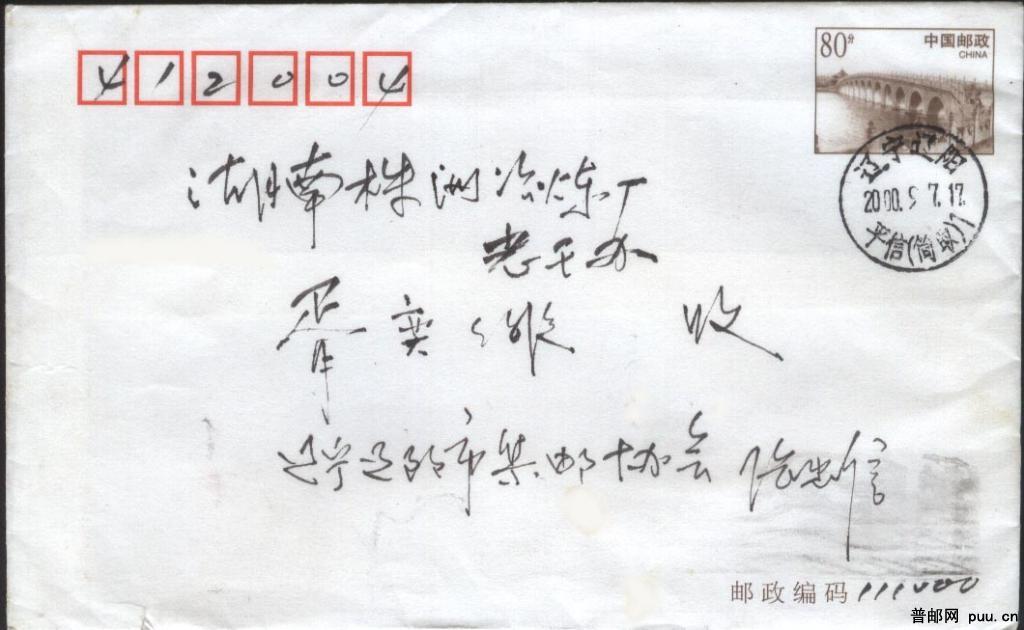 80分 中国邮政
CHINA
412004
湖南株洲冶炼厂
老干办
收
辽宁辽阳
2000.9.7.17
平信(简收)1
辽宁辽阳市集邮协会 陆忠信
邮政编码 111000
普邮网 puu.cn